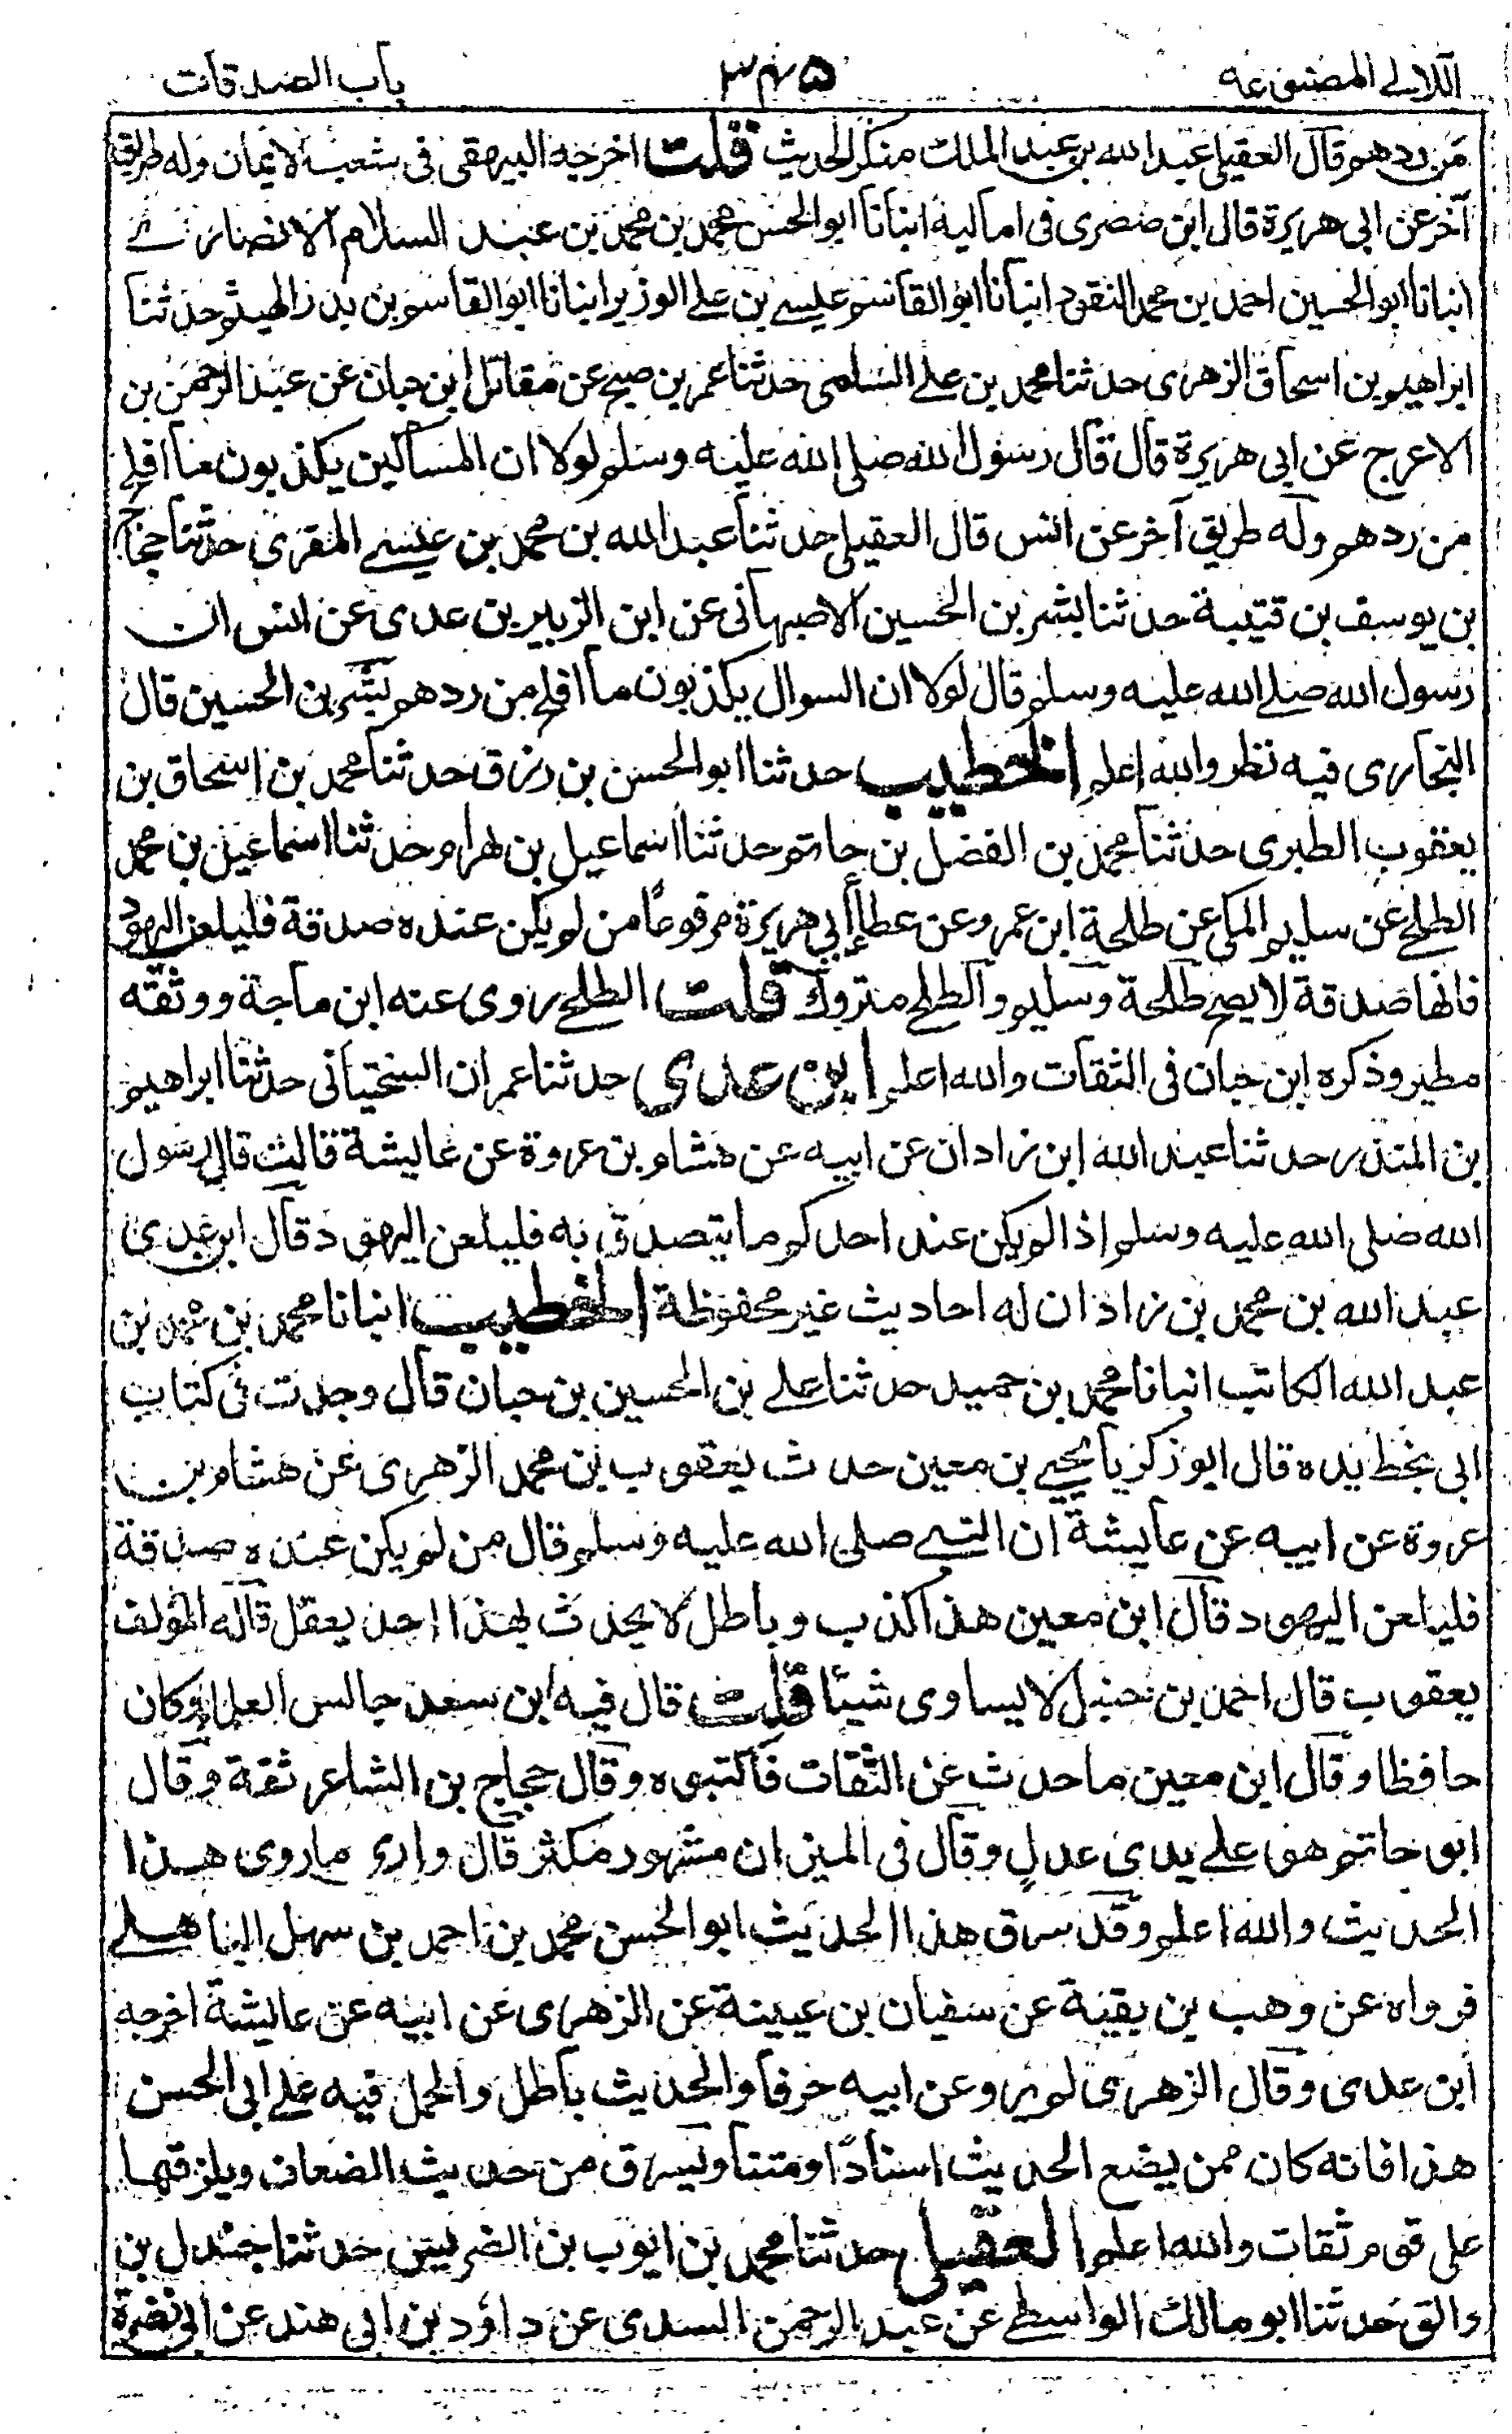 اللآلي المصنوعه ٣٤٥ باب الصدقات
من ردهم قال العقيلي عبد الله بن عبد الملك منكر الحديث قلت اخرجه البيهقي في شعب الايمان وله طريق
آخر عن ابي هريرة قال ابن صصرى في اماليه انبانا ابو الحسن محمد بن محمد بن عبد السلام الانصاري
انبانا ابو الحسين احمد بن محمد النقود انبانا ابو القاسم عليسے بن علے الوزير انبانا ابو القاسم بن بدر الهيثم حدثنا
ابراهيم بن اسحاق الزهرى حدثنا محمد بن علے السلمى حدثنا عمر بن صبح عن مقاتل ابن حبان عن عبد الرحمن بن
الاعرج عن ابى هريرة قال قال رسول الله صلى الله عليه وسلم لولا ان المساكين يكذبون ما افلح
من ردهم وله طريق آخر عن انس قال العقيلى حدثنا عبد الله بن محمد بن عيسے المقرى حدثنا حجاج
بن يوسف بن قتيبة حدثنا بشر بن الحسين الاصبهانى عن ابن الزبير بن عدى عن انس ان
رسول الله صلے الله عليه وسلم قال لولا ان السوال يكذبون ما افلح من ردهم بشر بن الحسين قال
البخارى فيه نظر والله اعلم الخطيب حدثنا ابو الحسن بن رزق حدثنا محمد بن اسحاق بن
يعقوب الطبرى حدثنا محمد بن الفضل بن حاتم حدثنا اسماعيل بن بهرام حدثنا اسماعيل بن محمد
الطلحے عن سليم المكى عن طلحة ابن عمرو عن عطا أبي هريرة مرفوعاً من لم يكن عنده صدقة فليلعن اليهود
فانها صدقة لا يصح طلحة وسليم والطلحے متروك قلت الطلحے روى عنه ابن ماجة ووثقه
مطير وذكره ابن حبان فى الثقات والله اعلم ابن عدى حدثنا عمران السختيانى حدثنا ابراهيم
بن المنذر حدثنا عبد الله ابن زادان عن ابيه عن هشام بن عروة عن عايشة قالت قال رسول
الله صلى الله عليه وسلم اذا لم يكن عند احدكم ما يتصدق به فليلعن اليهود قال ابن عدى
عبد الله بن محمد بن زاذان له احاديث غير محفوظة الخطيب انبانا محمد بن محمد بن
عبد الله الكاتب انبانا محمد بن حميد حدثنا علے بن الحسين بن حبان قال وجدت فى كتاب
ابى بخط يده قال ابو زكريا يحيے بن معين حدث يعقوب بن محمد الزهرى عن هشام بن
عروة عن ابيه عن عايشة ان النبے صلى الله عليه وسلم قال من لم يكن عنده صدقة
فليلعن اليهود قال ابن معين هذا كذب وباطل لا يحدث بهذا احد يعقل قاله المؤلف
يعقوب قال احمد بن حنبل لا يساوى شيئا قلت قال فيه ابن سعد جالس العلماء وكان
حافظا وقال ابن معين ما حدث عن الثقات فاكتبوه وقال حجاج بن الشاعر ثقة وقال
ابو حاتم هو علے يدى عدلٍ وقال فى الميزان مشهور مكثر قال واريٰ ما روى هذا
الحديث والله اعلم وقد سرق هذا الحديث ابو الحسن محمد بن احمد بن سهل الباهلے
فرواه عن وهب بن بقية عن سفيان بن عيينة عن الزهرى عن ابيه عن عايشة اخرجه
ابن عدى وقال الزهرى لم يرو عن ابيه حرفا والحديث باطل والحمل فيه علے ابى الحسن
هذا فانه كان ممن يضع الحديث اسناداً ومتنا ويسرق من حديث الضعاف ويلزقها
على قوم ثقات والله اعلم العقيلى حدثنا محمد بن ايوب بن الضريس حدثنا جندل بن
والق حدثنا ابو مالك الواسطے عن عبد الرحمن السدى عن داؤد بن ابى هند عن ابى نضرة